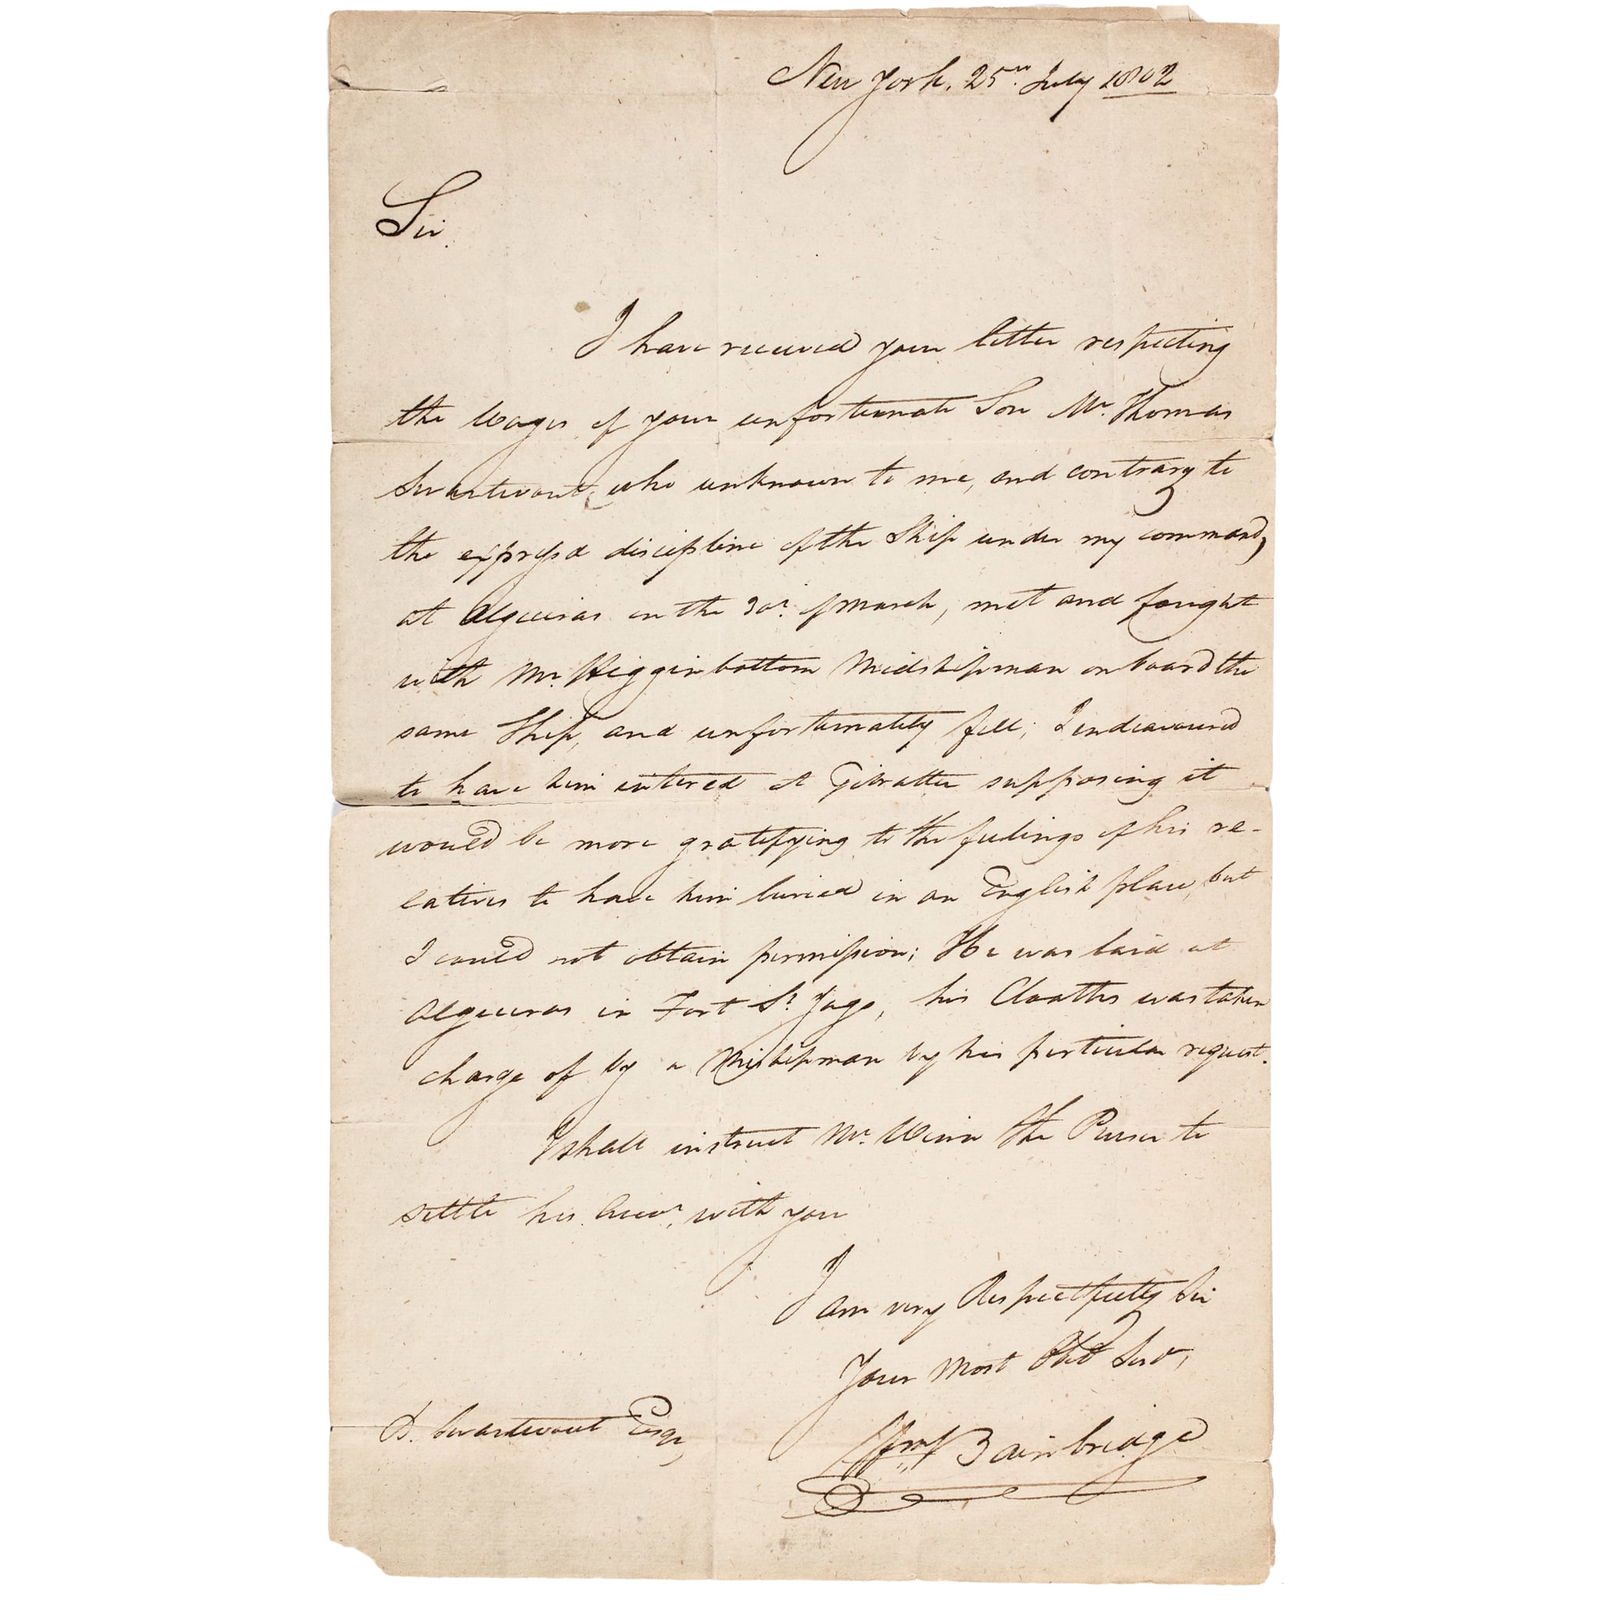 New York, 25th July 1802
Sir.
I have received your letter respecting
the Wages of your unfortunate Son Mr. Thomas
Swartwout, who unknown to me, and contrary to
the express'd discipline of the Ship under my command,
at Algeciras on the 30th of March, met and fought
with Mr. Higginbottom Midshipman on board the
same Ship, and unfortunately fell; I endeavoured
to have him intered at Gibralter supposing it
would be more gratifying to the feelings of his re-
latives to have him buried in an English place, but
I could not obtain permission; He was laid at
Algeciras in Fort St. Jago, his Cloaths was taken
charge of by a Midshipman by his particular request.
I shall instruct Mr. Winn the Purser to
settle his Accot. with you
I am very Respectfully Sir
Your Most Obt Servt,
Wm. Bainbridge
Swartwout Esqr,